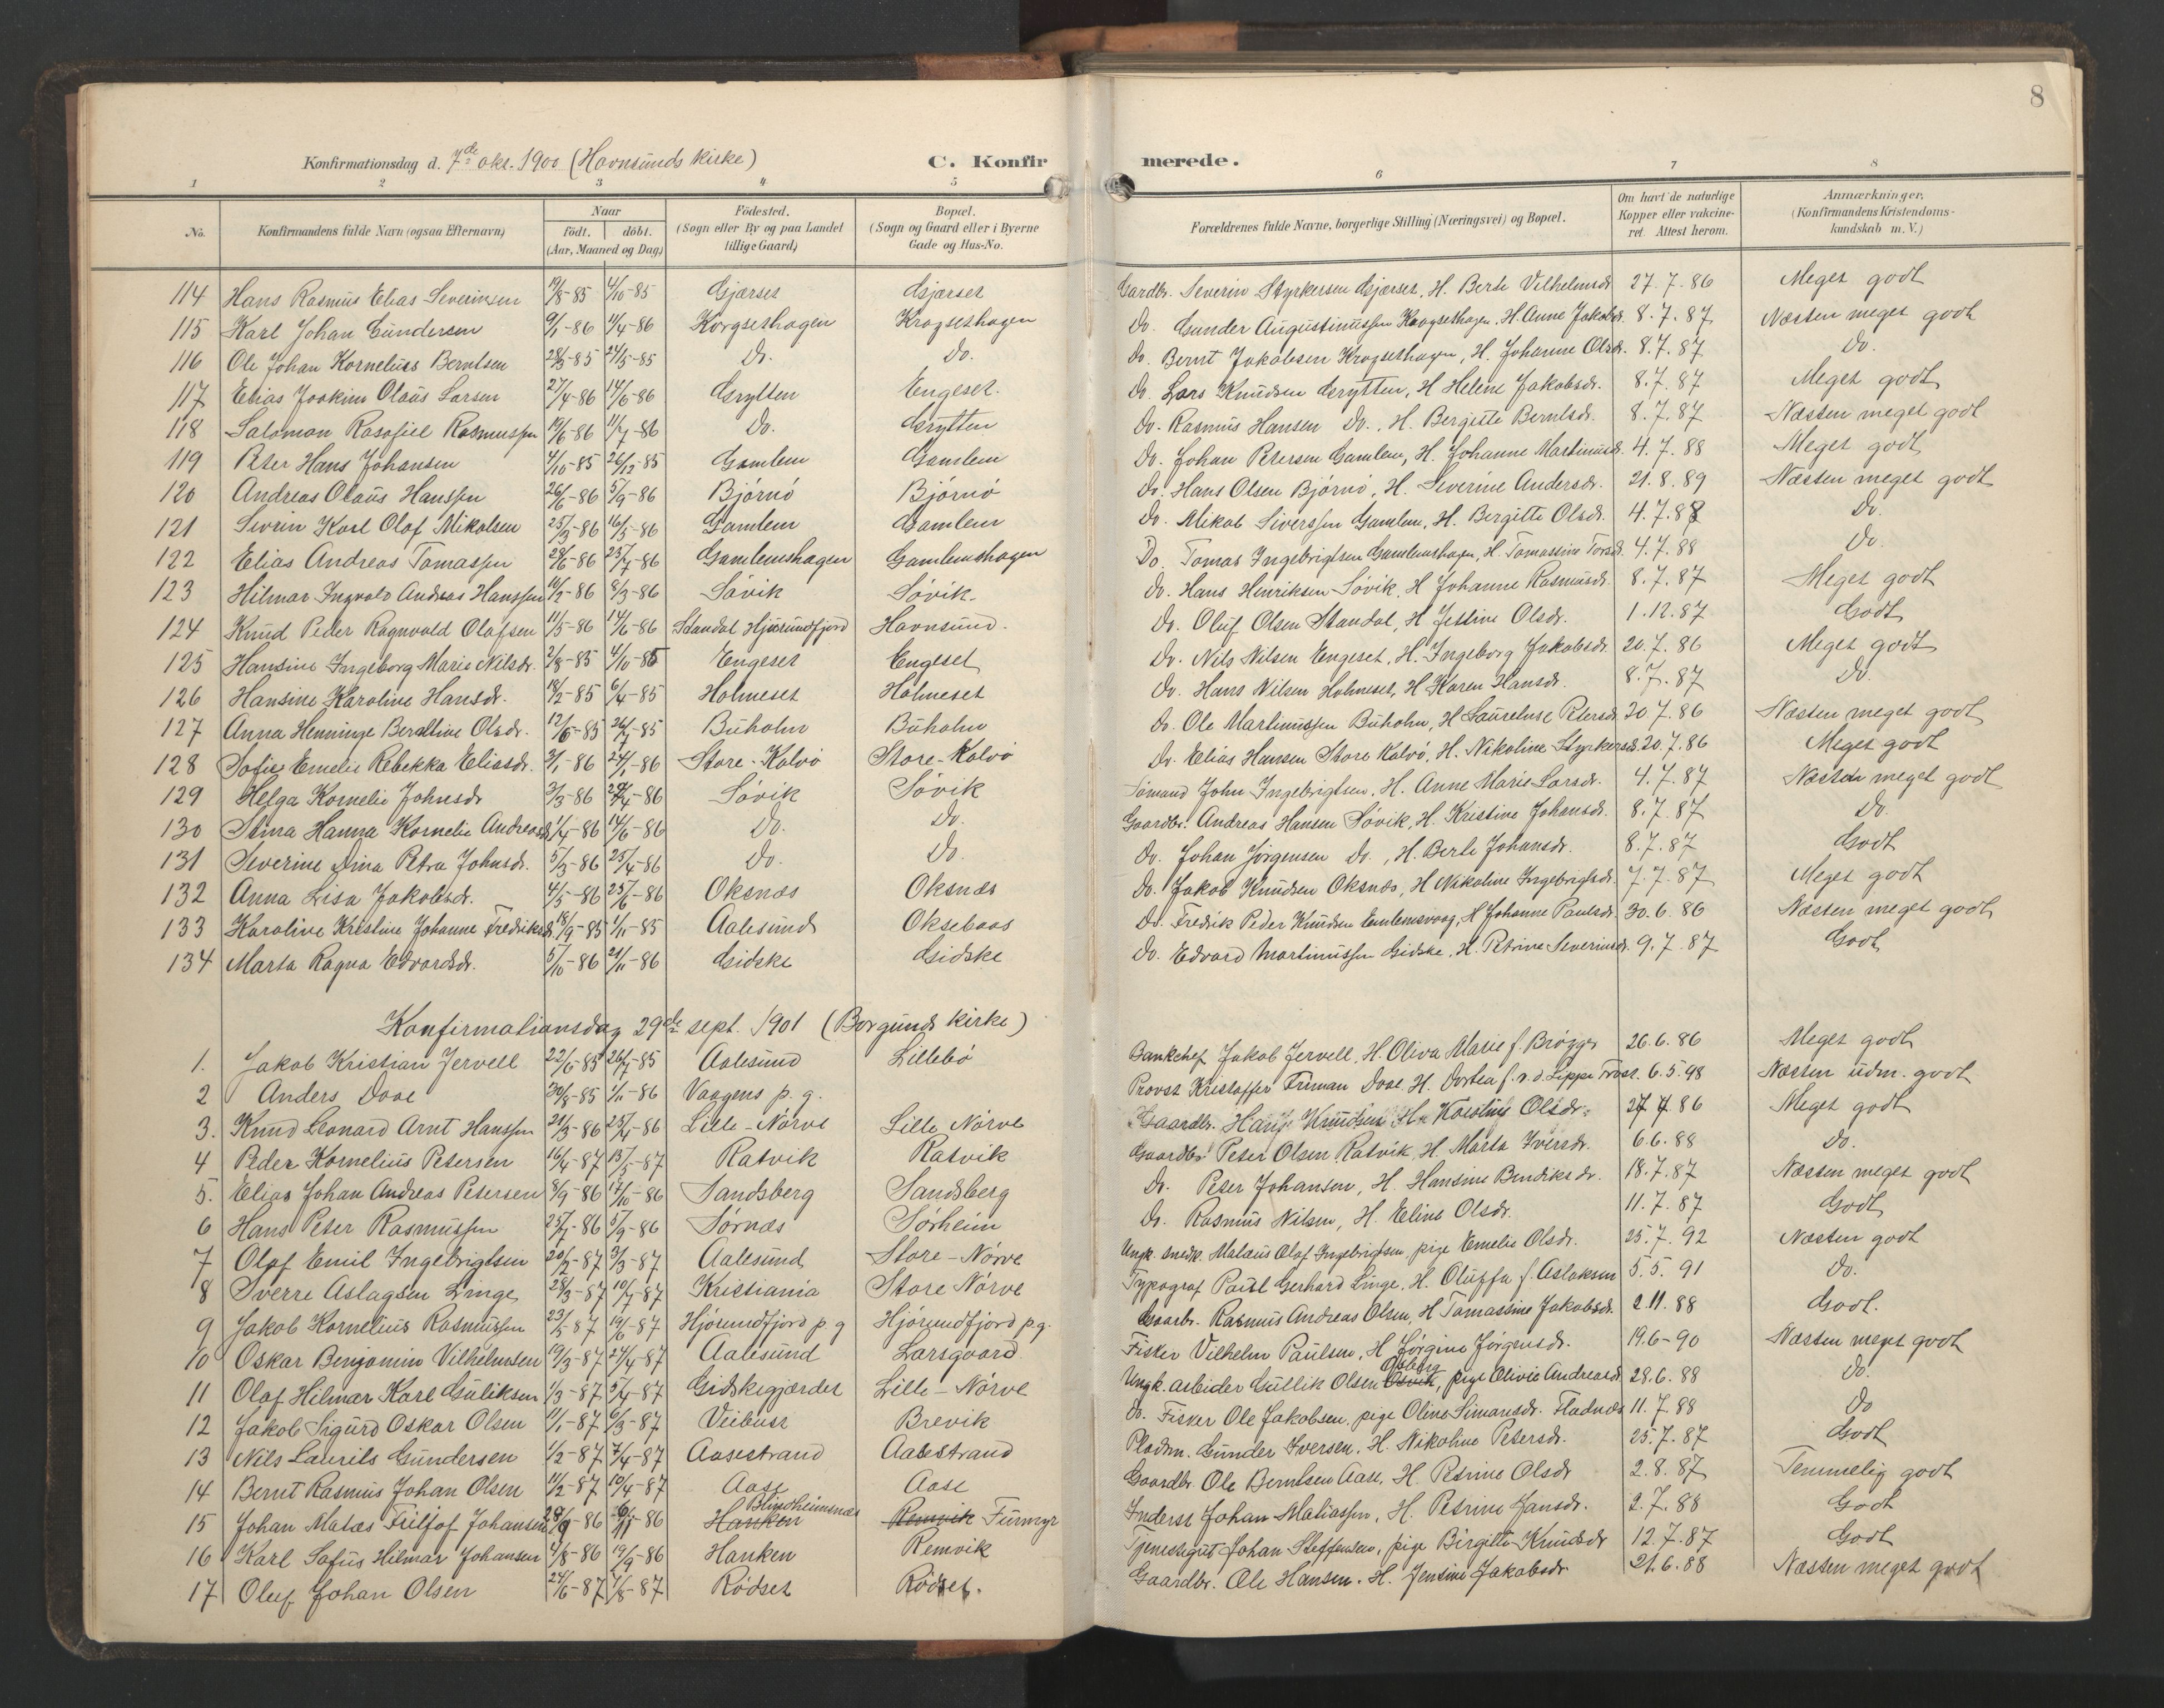 8
Konfirmationsdag d. 7de okt. 1900 (Havnsunds kirke) C. Konfirmerede.
1 2 3 4 5 6 7 8
No. Konfirmandens fulde Navn (ogsaa Efternavn) Naar födt. döbt. (Aar, Maaned og Dag) Födested. (Sogn eller By og paa Landet tillige Gaard) Bopæl. (Sogn og Gaard eller i Byerne Gade og Hus-No. Forældrenes fulde Navne, borgerlige Stilling (Næringsvei) og Bopæl. Om havt de naturlige Kopper eller vakcineret. Attest herom. Anmærkninger. (Konfirmandens Kristendomskundskab m. V.)
114 Hans Rasmus Elias Severinsen 19/8-85 4/10-85 Gjærset Gjærset Gardbr. Severin Styrkersen Gjærset, H. Berte Vilhelmsdr. 27.7.86 Meget godt
115 Karl Johan Gundersen 9/1-86 11/4-86 Korgsethagen Krogsethagen Do. Gunder Augustinussen Krogsethagen, H. Anne Jakobsd. 8.7.87 Næsten meget godt
116 Ole Johan Kornelius Berntsen 28/3-85 24/5-85 Do. Do. Do. Bernt Jakobsen Krogsethagen, H. Johanne Olsdr. 8.7.87 Do.
117 Elias Joakim Olaus Larsen 27/4-86 14/6-86 Grytten Engeset. Do. Lars Knudsen Grytten, H Heline Jakobsdr. 8.7.87 Meget godt
118 Salomon Rasofiel Rasmussen 19/6-86 11/7-86 Do. Grytten Do. Rasmus Hansen Do., H. Bergitte Berntsdr. 8.7.87 Næsten meget godt
119 Peter Hans Johansen 4/10-85 26/12-85 Gamlem Gamlem Do. Johan Petersen Gamlem, H. Johanne Martinusd. 4.7.88 Meget godt
120 Andreas Olaus Hanssen 26/6-86 5/9-86 Bjórnó Bjórnó Do. Hans Olsen Bjórnó, H. Severine Andersdr. 21.8.89 Næsten meget godt
121 Sivrin Karl Olaf Mikalsen 25/3-86 16/5-86 Gamlem Gamlem Do. Mikal Siverssen Gamlem, H. Bergitte Olsdr. 4.7.88 Do.
122 Elias Andreas Tomassen 28/6-86 25/7-86 Gamlemshagen Gamlemshagen Do. Tomas Ingebrigtsen Gamlemshagen, H. Tomassine Torsd. 4.7.88 Do.
123 Hilmar Ingvald Andreas Hanssen 10/2-86 8/3-86 Sóvik Sóvik. Do. Hans Henriksen Sóvik, H Johanne Rasmusdr. 8.7.87 Meget godt
124 Knud Peder Ragnvald Olafsen 11/5-86 14/6-86 Standal Hjórundfjord Havnsund. Do. Oluf Olsen Standal, H Jettine Olsdr. 1.12.87 Godt
125 Hansine Ingeborg Marie Nilsdr. 2/8-85 4/10-85 Engeset Engeset Do. Nils Nilsen Engeset, H. Ingeborg Jakobsdr. 20.7.86 Meget godt
126 Hansine Karoline Hansdr. 18/2-85 6/4-85 Holmeset Holmeset Do. Hans Nilsen Holmeset, H Karen Hansdr. 8.7.87 Do.
127 Anna Henninge Berntine Olsdr. 12/6-85 26/7-85 Buholm Buholm Do. Ole Martinussen Buholm, H Lauretnse Petersd. 20.7.86 Næsten meget godt
128 Sofie Emelie Rebekka Eliasdr. 3/1-86 24/1-86 Store-Kalvó Store-Kalvó Do. Elias Hansen Store Kalvó, H. Nikoline Styrkersd. 20.7.86 Meget godt
129 Helga Kornelie Johnsdr 3/3-86 29/4-86 Sóvik Sóvik Sómand John Ingebrigtsen, H. Anne Marie Larsdr. 4.7.87 Næsten meget godt
130 Stina Hanna Kornelie Andreasd. 1/4-86 14/6-86 Do. Do. Gaardbr. Andreas Hansen Sóvik, H. Kristine Johansd. 8.7.87 Do.
131 Severine Dina Petra Johnsdr. 5/3-86 25/4-86 Do. Do. Do. Johan Jörgensen Do., H. Berte Johansdr. 8.7.87 Godt
132 Anna Lisa Jakobsdr. 4/5-86 25/6-86 Oksnæs Oksnæs Do. Jakob Knudsen Oksnæs, H Nikoline Ingebrigtsd. 7.7.87 Meget godt
133 Karoline Kristine Johanne Fredriksd. 18/9-85 1/11-85 Aalesund Oksebaas Do. Fredrik Peder Knudsen Emlemsvaag, H Johanne Paulsdr. 30.6.86 Næsten meget godt
134 Marta Ragna Edvardsdr. 5/10-86 21/11-86 Gidske Gidske Do. Edvard Martinussen Gidske, H. Petrine Severinsd. 9.7.87 Godt
Konfirmationsdag 29de sept. 1901 (Borgunds kirke)
1. Jakob Kristian Jervell 22/6-85 26/7-85 Aalesund Lillebó Bankchef Jakob Jervell, H. Oliva Marie f. Brógger 26.6.86 Meget godt
2 Anders Daae 30/8-85 1/11-86 Vaagens p. g. Provst Kristoffer Friman Daae H. Dortea f. v. d. Lippe 6.5.98 Næsten udm. godt
3. Knud Leonard Arnt Hanssen 21/3-86 25/4-86 Lille-Nórve Lille Nórve Gaardbr. Hans Knudsen H. Karoline Olsdr. 27 7.86 Meget godt
4 Peder Kornelius Petersen 16/4-87 13/5-87 Ratvik Ratvik Gaardbr. Peter Olsen Ratvik, H. Marta Iversdr. 6.6.88 Do.
5. Elias Johan Andreas Petersen 8/9-86 17/10-86 Sandsberg Sandsberg Do. Peter Johansen, H. Hansine Bendiksdr. 18.7.87 Næsten meget godt
6 Hans Peter Rasmussen 25/7-86 5/9-86 Sórnæs Sórheim Do. Rasmus Nilsen, H. Eline Olsdr. 11.7.87 Godt
7 Olaf Emil Ingebrigtsen 20/2-87 3/3-87 Aalesund Store-Nórve Ungk. snedk. Malæus Olaf Ingebrigtsen, pige Emelie Olsdr. 25.7.92 Næsten godt
8 Sverre Aslagsen Linge 28/3-87 10/7-87 Kristiania Store Nórve Typograf Paul Gerhard Linge, H. Oluffa f. Aslaksen 5.5.91 Do.
9 Jakob Kornelius Rasmussen 23/5 87 19/6-87 Hjórundfjord p g Hjórundfjord p.g. Gaarbr. Rasmus Andreas Olsen, H Tomassine Jakobsd. 2.11.88 Godt.
10 Oskar Benjamin Vilhelmsen 19/3-87 24/4-87 Aalesund Larsgaard Fisker Vilhelm Paulsen, H Jórgine Jórgensdr. 19.6-90 Næsten meget godt
11 Olaf Hilmar Karl Guliksen 1/3-87 5/4-87 Gidskegjærdet Lille-Nórve Ungk. arbeider Gullik Olsen Osvik, pige Olivie Andreasd. 28.6.88 Do.
12 Jakob Sigurd Oskar Olsen 11/1-87 6/3-87 Veibust Brevik Do. Fisker Ole Jakobsen, pige Oline Simonsdr. Fladnæs 11.7.88 Do
13 Nils Laurits Gundersen 1/2-87 7/4-87 Aasestrand Aasestrand Pladsm. Gunder Iversen, H. Nikoline Petersdr. 25.7.87 Godt
14 Bernt Rasmus Johan Olsen 11/2-87 10/4-87 Aase Aase Gaardbr. Ole Berntsen Aase, H. Petrine Olsdr 2.8.87 Temmelig godt
15 Johan Matæs Fritjof Johansen 28/9-86 6/11-86 Hanken Blindheimsnæs Remvik Furmyr Inderst Johan Matiassen, H. Petrine Jansdr. 2.7.88 Godt
16 Karl Sofus Hilmar Johansen 4/8-86 19/9-86 Hanken Remvik Tjenestegut Johan Steffensen, pige Birgitte Knudsdr 12.7.87 Godt
17 Oluf Johan Olsen 24/6-87 7/8-87 Ródset Ródset. Gaardbr. Ole Hansen. H. Jensine Jakobsdr 21.6.88 Næsten meget godt